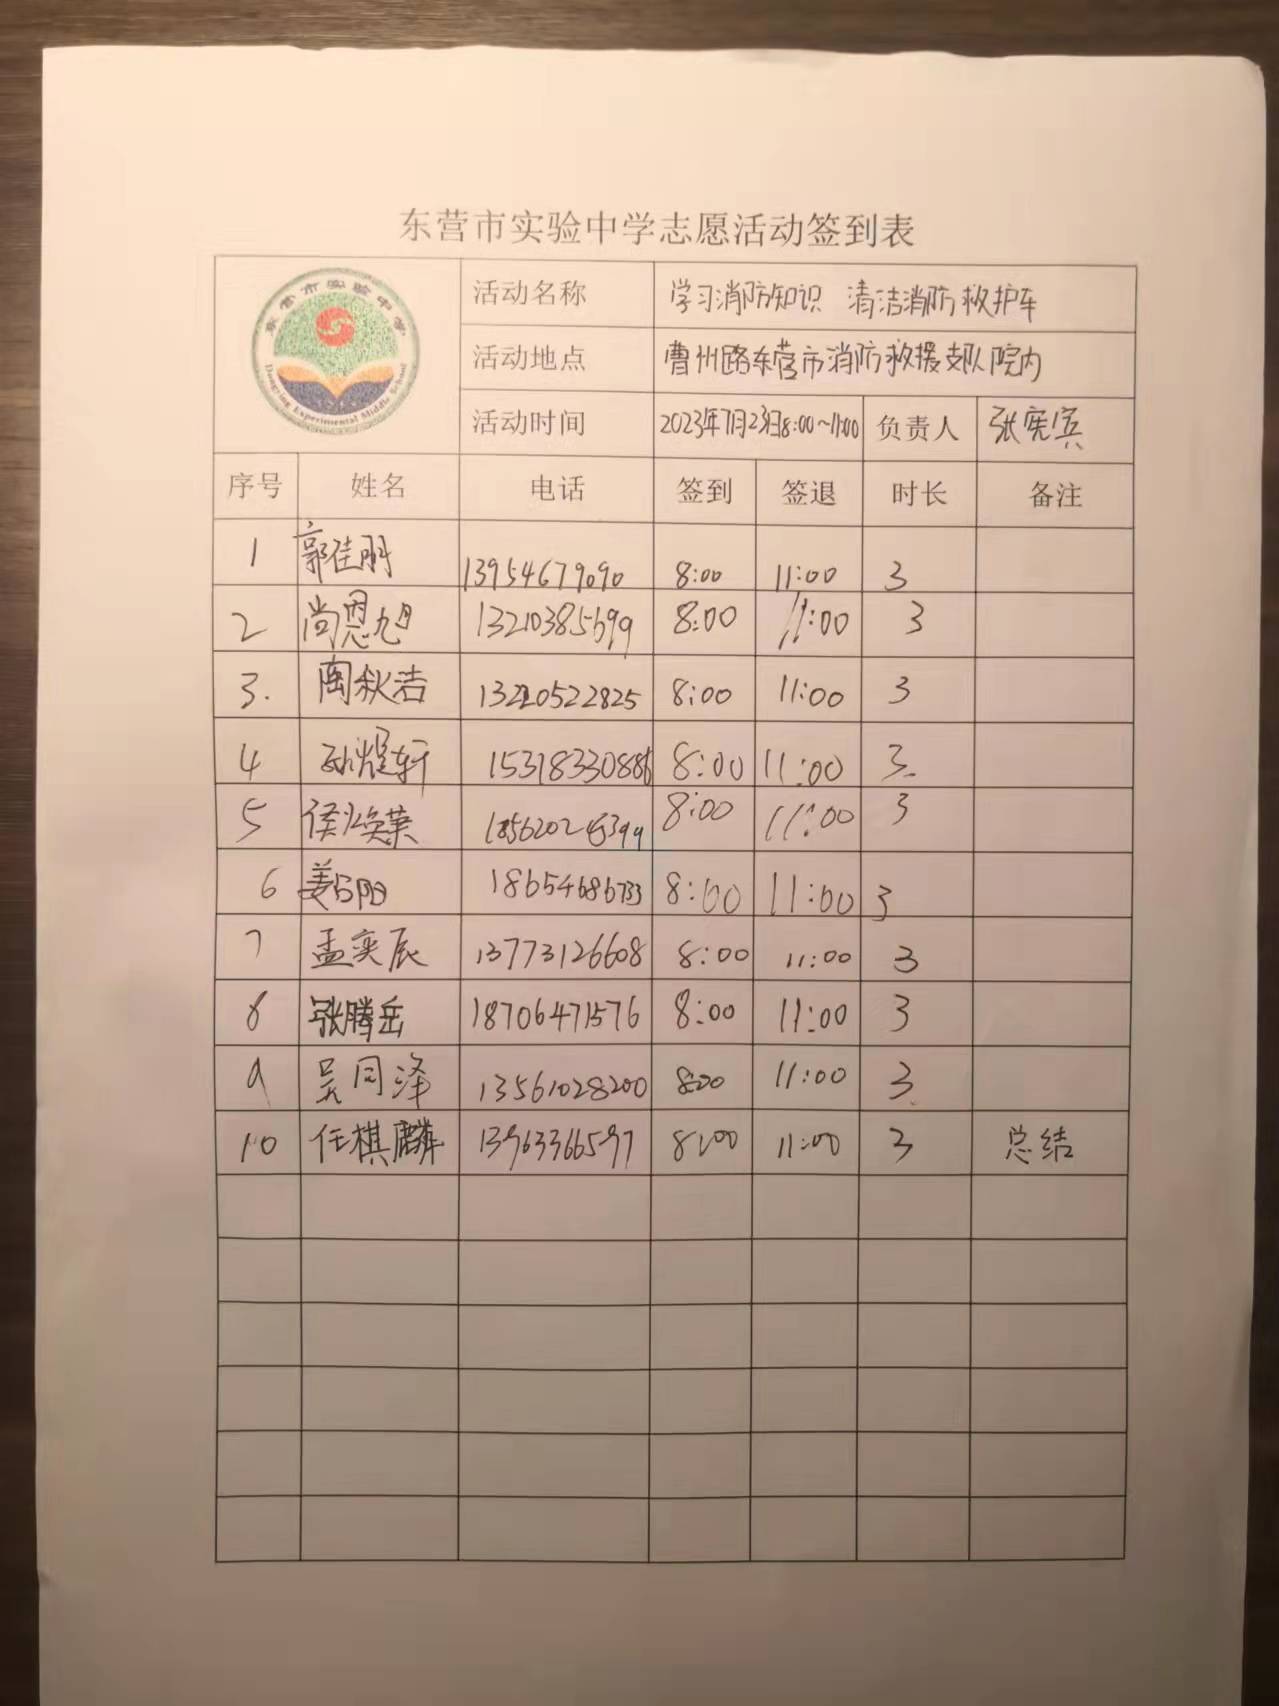 东营市实验中学志愿活动签到表
东营市实验中学
Dongying Experimental Middle School
活动名称 学习消防知识 清洁消防救护车
活动地点 曹州路东营市消防救援支队院内
活动时间 2023年7月23日8:00~11:00 负责人 张宪宾
序号 姓名 电话 签到 签退 时长 备注
1 郭佳朋 13954679090 8:00 11:00 3
2 尚恩旭 13210385699 8:00 11:00 3
3. 陶秋洁 13220522825 8:00 11:00 3
4 孙煜轩 15318330886 8:00 11:00 3
5 8:00 11:00 3
6 18654686733 8:00 11:00 3
7 孟奕辰 13773126608 8:00 11:00 3
8 张腾岳 18706471576 8:00 11:00 3
9 吴同泽 13561028200 8:00 11:00 3
10 任棋麟 13963366597 8:00 11:00 3 总结